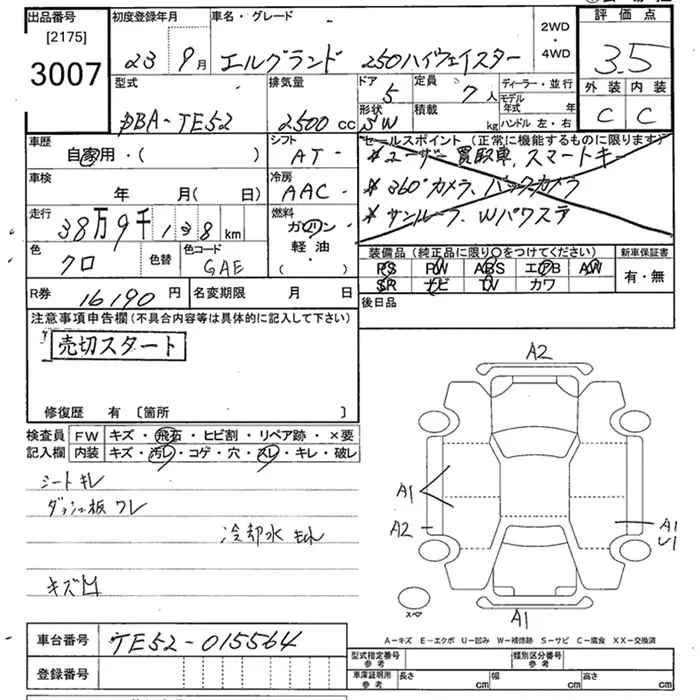 出品番号
[2175]
3007
初度登録年月
23 9月
車名・グレード
エルグランド 250ハイウェイスター
2WD
・
4WD
評価点
3.5
外装 内装
C C
型式
DBA-TE52
排気量
2500cc
ドア
5
形状
SW
定員
7人
積載
kg
ディーラー・並行
モデル
年式 年
ハンドル 左・右
車歴
自家用・( )
シフト
AT-
セールスポイント(正常に機能するものに限ります)
*ユーザー買取車、スマートキー
*360°カメラ、バックカメラ
*サンルーフ、Wパワスラ
車検
年 月(日)
冷房
AAC-
走行
38万9千138km
燃料
ガソリン
軽油・
( )
色
クロ
色替
色コード
GAE
装備品(純正品に限り○をつけてください)
PS PW ABS エアB AW
SR ナビ TV カワ
新車保証書
有・無
R券
16190円
名変期限 月 日
後日品
注意事項申告欄(不具合内容等は具体的に記入して下さい)
売切スタート
修復歴 有 [箇所 ]
検査員
記入欄
FW キズ・飛石・ヒビ割・リペア跡・×要
内装 キズ・汚レ・コゲ・穴・スレ・キレ・破レ
シートキレ
ダッシュ板ワレ
冷却水もれ
キズ凹
A2
A1
A2
A1
U1
A1
スペア
A-キズ E-エクボ U-凹み W-補修跡 S-サビ C-腐食 XX-交換済
車台番号
TE52-015564
登録番号
型式指定番号
参考
類別区分番号
参考
車庫証明用
参考
長さ cm 幅 cm 高さ cm